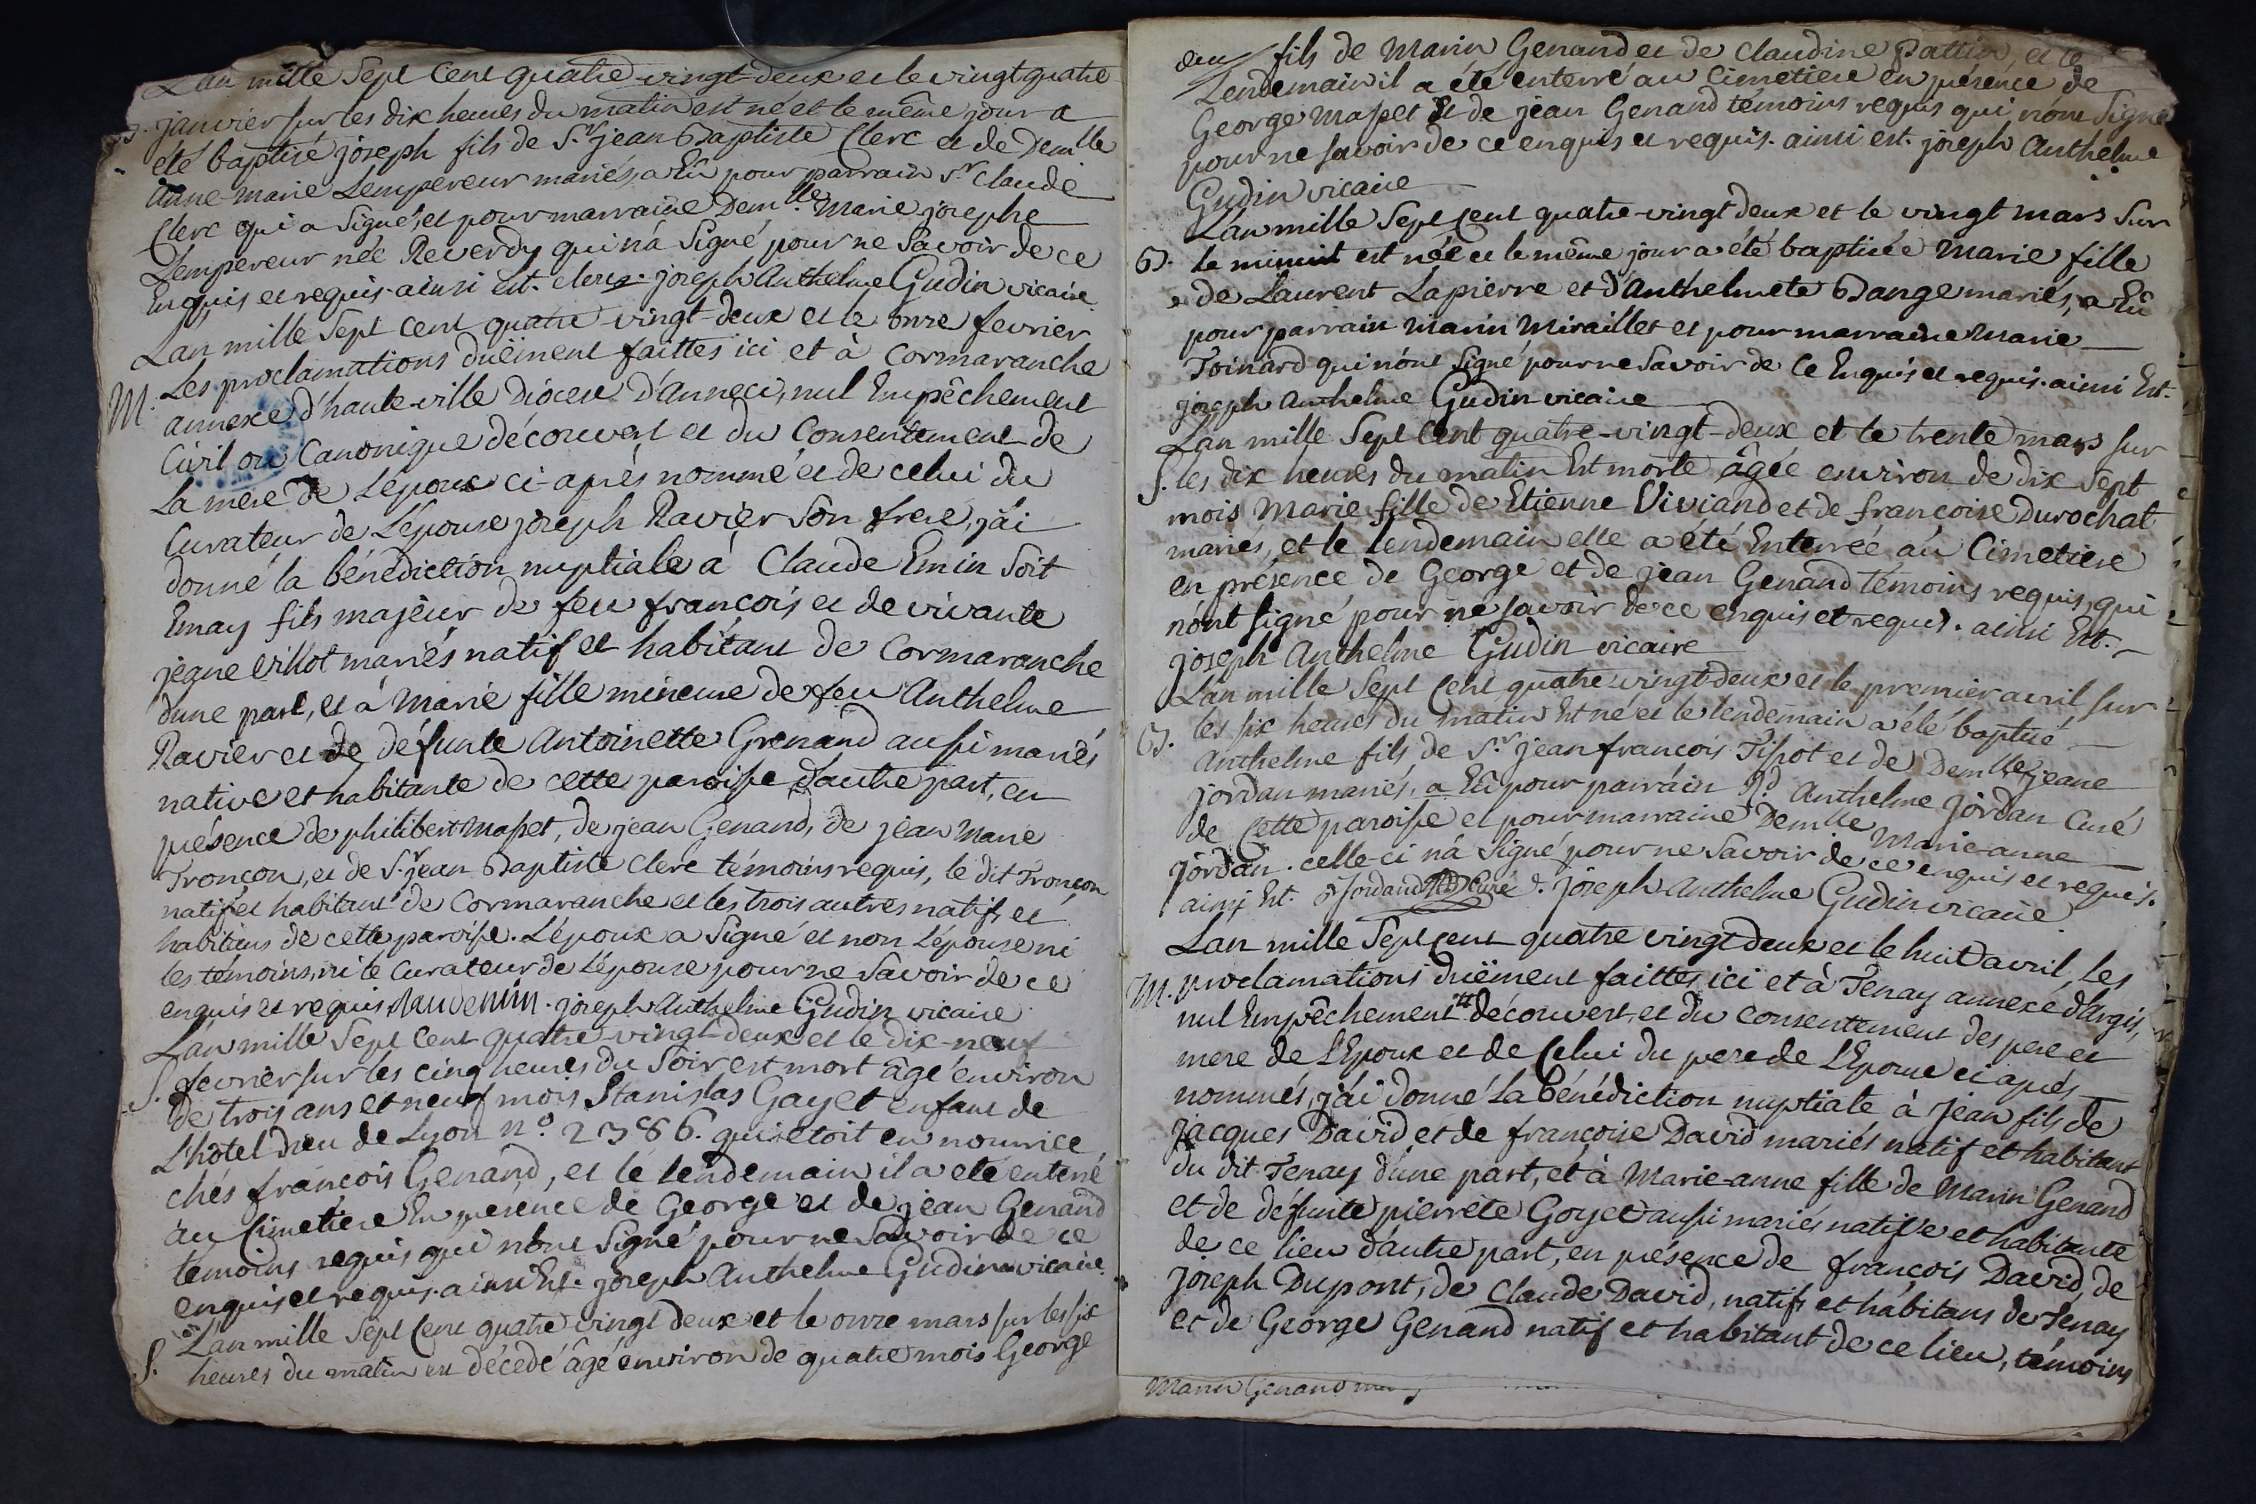 Lan mille Sept Cent quatre-vingt-deux et le vingt quatre
B. janvier sur les dix heures du matin est né et le même jour a
été baptisé joseph fils de Sr. jean Baptiste Clerc et de Demlle
Anne-marie Lempereur mariés, a Eû pour parrain Sr. Claude
Clerc qui a Signé, et pour marraine Demlle. Marie josephe
Lempereur née Reverdy qui n'a Signé pour ne Savoir de ce
Enquis et requis. ainsi est. clerc joseph Anthelme Gudin vicaire
Lan mille Sept Cent quatre-vingt-deux et le onze fevrier
M. Les proclamations duëment faittes ici et à Cormaranche
annexe d'hauteville Diocese D'anneci, nul Empêchement
Civil ou Canonique découvert et du Consentement de
La mere de L'époux ci-après nommé et de celui du
Curateur de L'épouse joseph Ravier Son frere, j'ai
donné la bénédiction nuptiale à Claude Emin Soit
Emay fils majeur de feu francois et de vivante
jeane Villot mariés natif et habitant de Cormaranche
dune part, et à Marie fille mineure de feu Anthelme
Ravier et de défunte Antoinette Grenand aussi mariés
native et habitante de cette paroisse d'autre part, en
présence de philibert Masset, de jean Genand, de jean Marie
Tronçon, et de Sr. jean Baptiste Clerc témoins requis, le dit Tronçon
natif et habitant de Cormaranche et les trois autres natifs et
habitans de cette paroisse. L'époux a Signé et non L'épouse ni
les témoins, ni le Curateur de L'épouse pour ne Savoir de ce
enquis et requis. Claudemin. joseph Anthelme Gudin vicaire
Lan mille Sept Cent quatre-vingt-deux et le dix-neuf
S. fevrier sur les cinq heures du Soir est mort âgé environ
de trois ans et neuf mois Stanislas Gayet enfant de
L'hôtel Dieu de Lyon n°. 2386. qui etoit en nourrice
chés francois Genand, et le lendemain il a eté enterré
au Cimetiere En presence de George et de jean Genand
témoins requis qui n'ont Signé pour ne Savoir de ce
enquis et requis. ainsi Est. joseph Anthelme Gudin vicaire.
Lan mille Sept Cent quatre vingt deux et le onze mars sur les six
S. heures du matin est décédé âgé environ de quatre mois George
fils de Marin Genand et de Claudine Pattin, et le
Lendemain il a été enterré au Cimetiere en présence de
George Masset et de jean Genand témoins requis qui n'ont Signé
pour ne savoir de ce enquis et requis. ainsi est. joseph Anthelme
Gudin vicaire
Lan mille Sept Cent quatre-vingt deux et le vingt mars Sur
B. le minuit est née et le même jour a été baptisée Marie fille
de Laurent Lapierre et d'Anthelmete Dange mariés, a Eû
pour parrain Marin Miraillet et pour marraine Marie
Toinard qui n'ont Signé pour ne Savoir de Ce Enquis et requis. ainsi Est.
joseph Anthelme Gudin vicaire
Lan mille Sept Cent quatre-vingt-deux et le trente mars sur
S. les dix heures du matin Est morte âgée environ de dix Sept
mois Marie fille de Etienne Viviand et de francoise Durochat
mariés, et le lendemain elle a été Enterrée au Cimetiere
en présence de George et de jean Genand témoins requis, qui
n'ont signé pour ne savoir de ce enquis et requis. ainsi Est.
joseph Anthelme Gudin vicaire
Lan mille Sept Cent quatre vingt-deux et le premier avril sur
B. les six heures du matin Est né et le lendemain a été baptisé
Anthelme fils de Sr. jean francois Tissot et de Demlle jeane
jordan mariés, a Eû pour parrain Anthelme jordan Curé
de Cette paroisse et pour marraine Demlle Marie-anne
jordan. celle-ci n'a Signé pour ne Savoir de ce enquis et requis.
ainsi Est. jordand Curé. joseph Anthelme Gudin vicaire
Lan mille Sept Cent quatre vingt deux et le huit avril, les
M. proclamations duëment faittes ici et à Tenay annexe d'Argis,
nul Empêchement découvert, et du Consentement des pere et
mere de L'Epoux et de Celui du pere de L'Epouse ci après
nommés, j'ai donné la bénédiction nuptiale à jean fils de
jacques David et de francoise David mariés natif et habitant
du dit Tenay d'une part, et à Marie-anne fille de Marin Genand
et de défunte pierrete Goyet aussi mariés native et habitante
de ce lieu d'autre part, en présence de francois David, de
joseph Dupont, de Claude David, natifs et habitans de Tenay
et de George Genand natif et habitant de ce lieu, témoins
Marin Genand